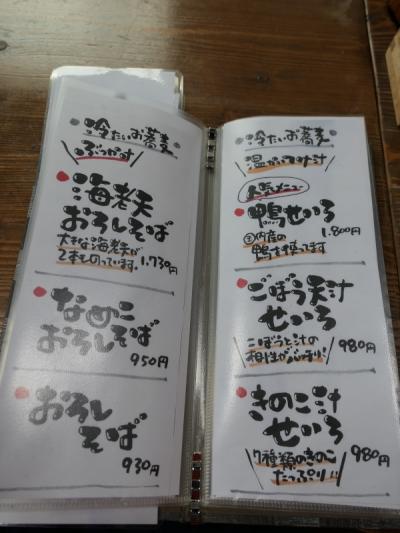 冷たいお蕎麦
ぶっかけ
海老天
おろしそば
大きな海老天が
2本ものっています。1,730円
なめこ
おろしそば
950円
おろし
そば
930円
冷たいお蕎麦
温かいつけ汁
人気メニュー
鴨せいろ
1,800円
国内産の
鴨を使ってます
ごぼう天汁
せいろ
ごぼうと汁の
相性がバッチリ!
980円
きのこ汁
せいろ
7種類のきのこ
たっぷり!!
980円